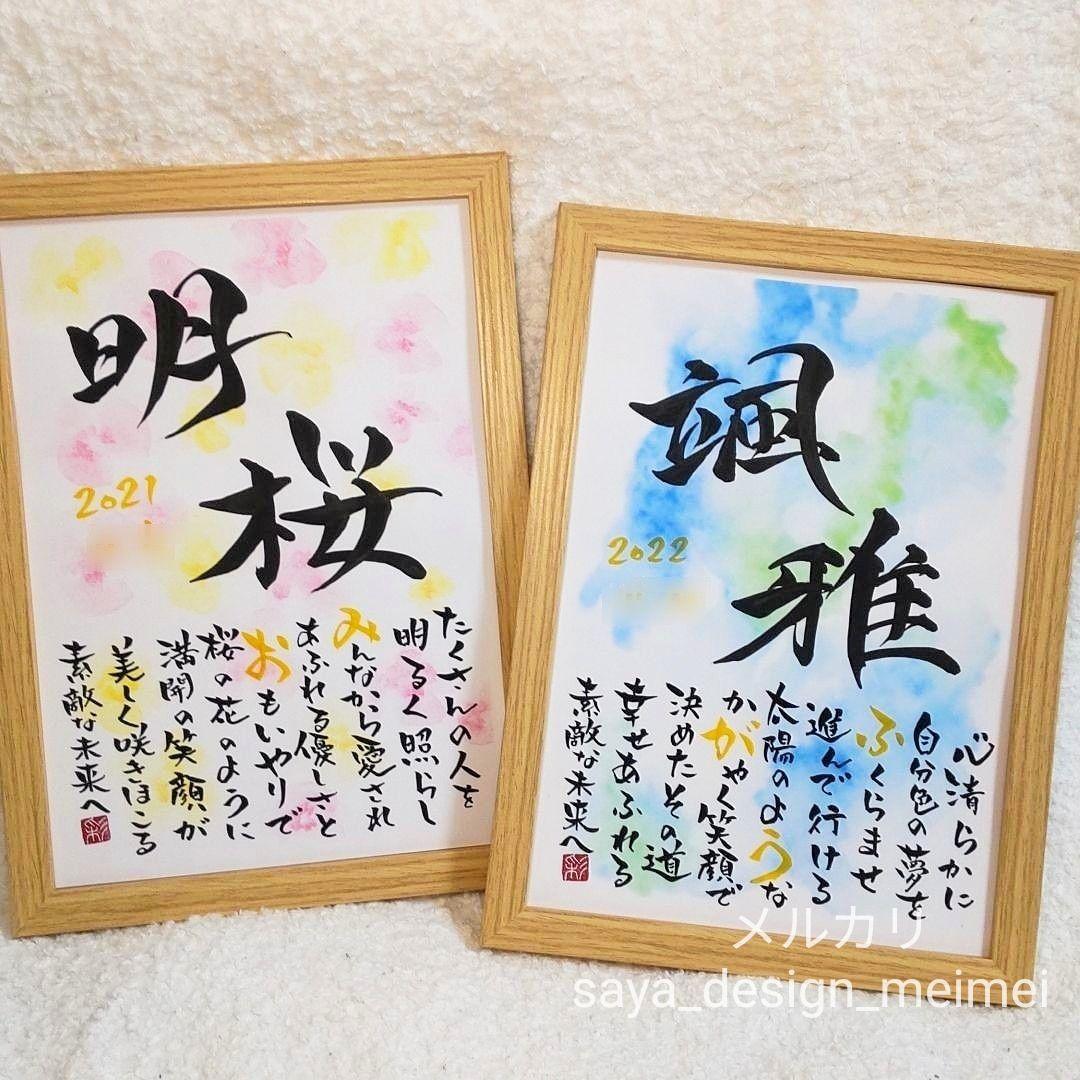 明桜
2021
たくさんの人を
明るく照らし
みんなから愛され
あふれる優しさと
おもいやりで
桜の花のように
満開の笑顔が
美しく咲きほこる
素敵な未来へ
彩
颯雅
2022
心清らかに
自分色の夢を
ふくらませ
進んで行ける
太陽のような
かがやく笑顔で
決めたその道
幸せあふれる
素敵な未来へ
彩
メルカリ
saya_design_meimei